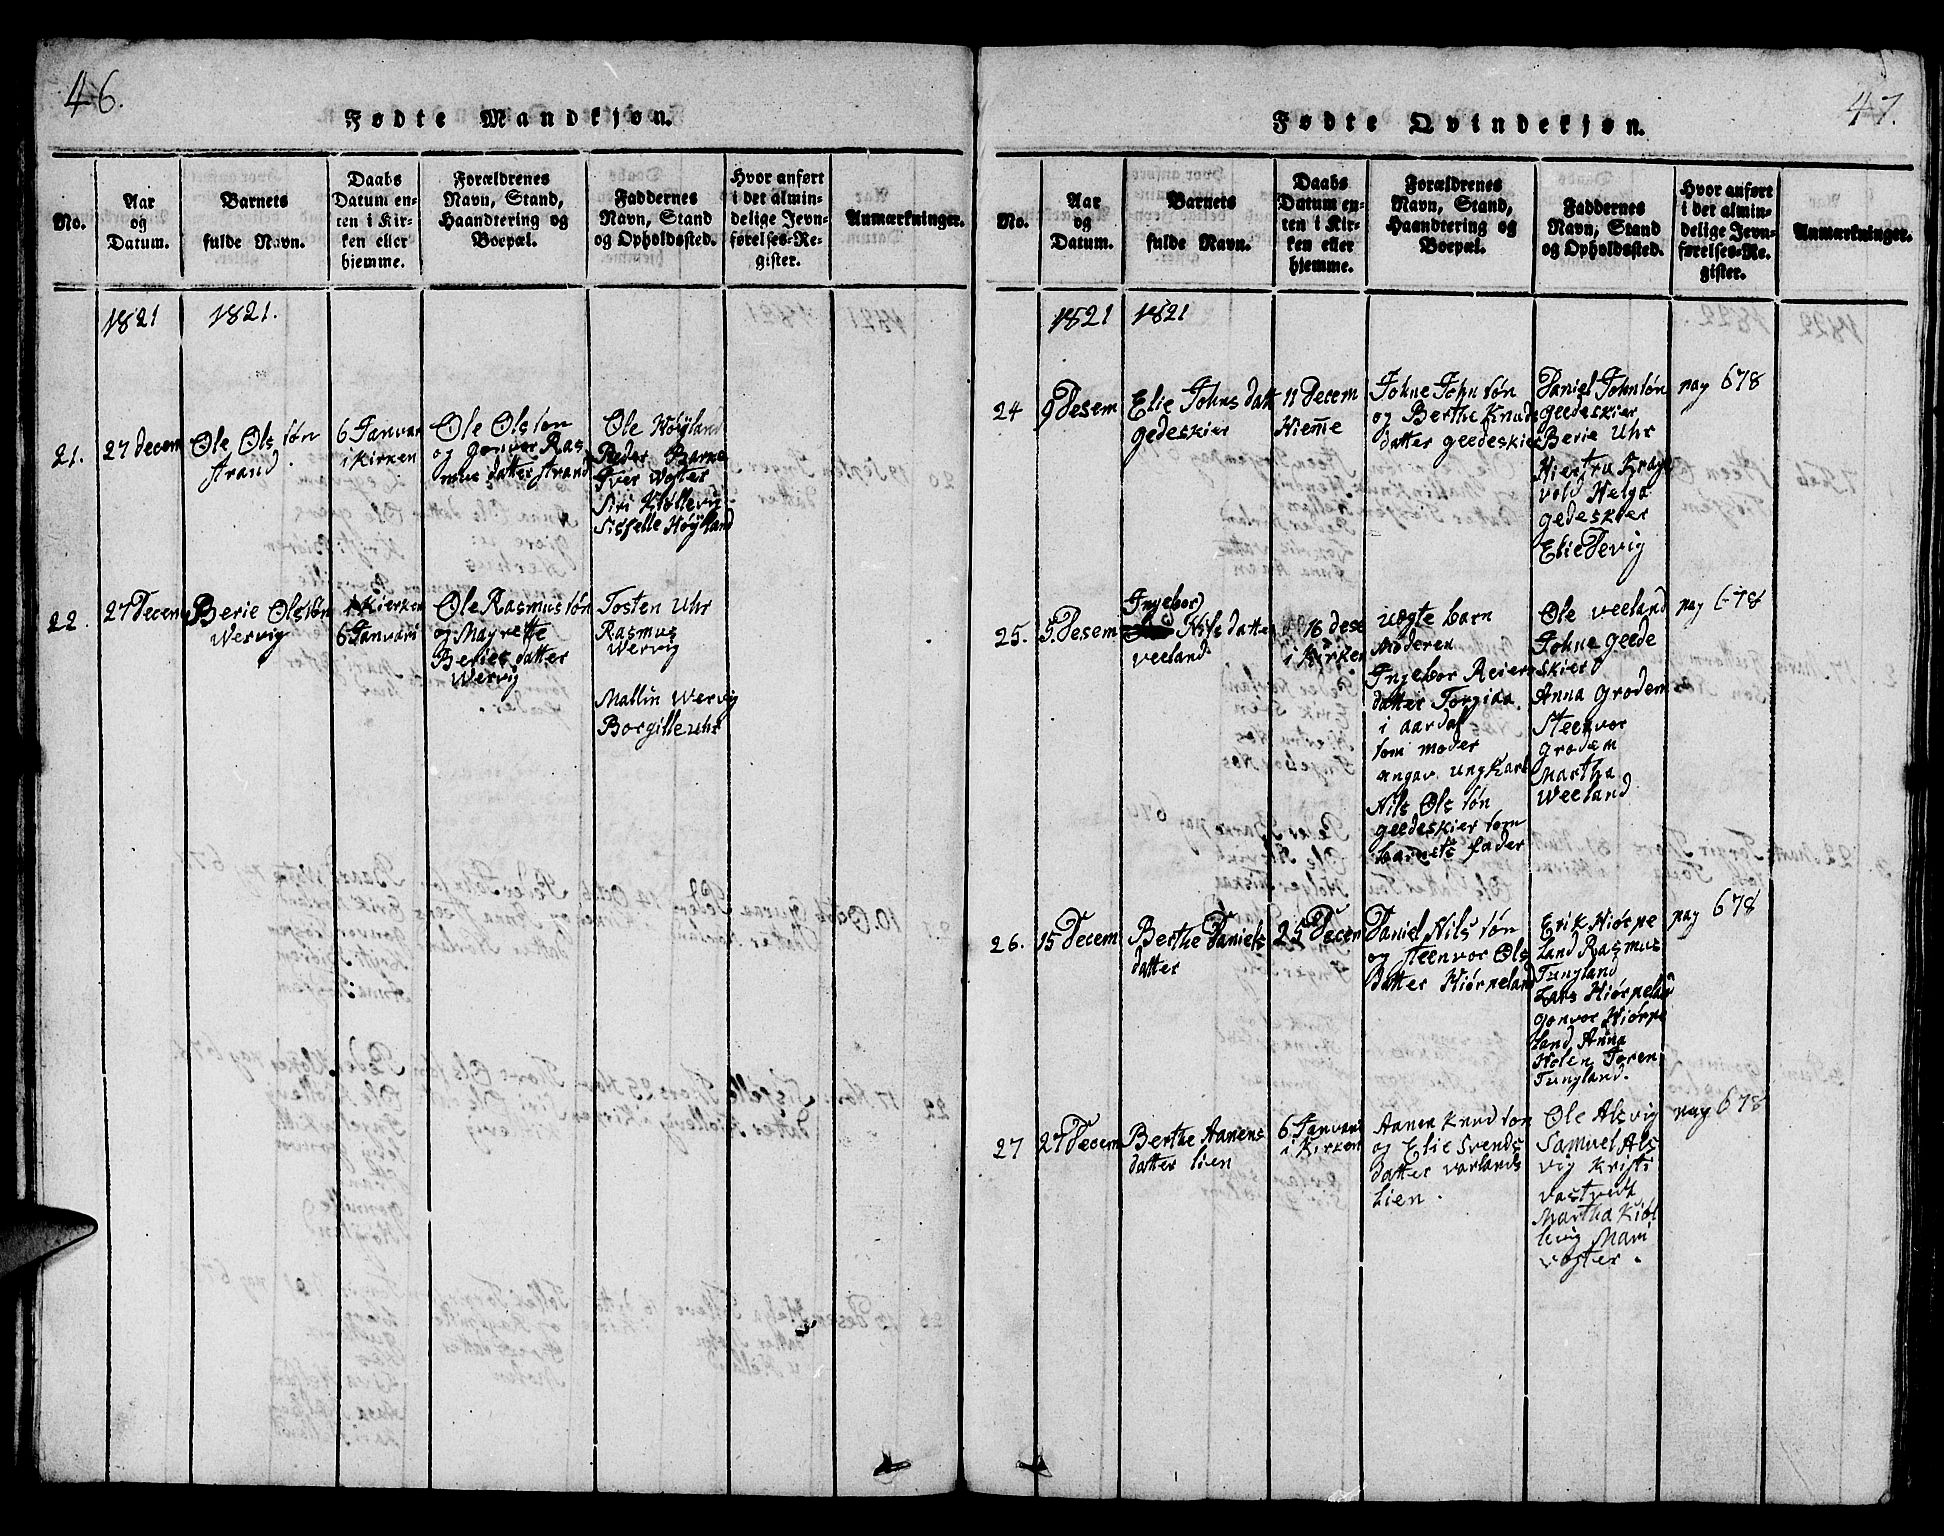 46.
Fødte Mandkjøn.
No.
Aar
og
Datum.
Barnets
fulde Navn.
Daabs
Datum en-
ten i Kir-
ken eller
hjemme.
Forældrenes
Navn, Stand,
Haandtering og
Boepæl.
Faddernes
Navn, Stand
og Opholdssted.
Hvor anført
i det almin-
delige Jevn-
førelses-Re-
gister.
Anmærkninger.
1821
1821.
21.
27 decem
Ole Ols søn
strand
6 Januar
i Kirken
Ole Ols søn
og Gonvor Ras
mus datter strand
Ole Høyland
Peder Barne
Iver Woster
Siri Kløllevig
Sisselle Høyland
22.
27 Decem
Berie Ols søn
Wervig
i Kierken
6 Januari
Ole Rasmus søn
og Mayrette
Beries datter
Wervig
Tosten Uhr
Rasmus
Wervig
Mallin Wervig
Borgille Uhr
47.
Fødte Qvindekjøn.
No.
Aar
og
Datum.
Barnets
fulde Navn.
Daabs
Datum en-
ten i Kir-
ken eller
hjemme.
Forældrenes
Navn, Stand,
Haandtering og
Boepæl.
Faddernes
Navn, Stand
og Opholdssted.
Hvor anført
i det almin-
delige Jevn-
førelses-Re-
gister.
Anmærkninger.
1821
1821
24
9 Desem
Elie Johns datt
gedeskier
11 Decem
Hiem̅e
Johne John søn
og Berthe Knuds
datter geedeskier
Daniel John søn
geedeskier
Berie Uhr
Hiertru Krage
vold Helga
gedeskier
Elie Tevig
pag 678
25.
5 Desem
Ingebor
Nils datter
veeland
16 dese
i Kirken
uægte barn
moderen
Ingebor Reiers
datter
i aardal
som moder
angav ungkarl
Nils Ols søn
geedeskier som
barnets fader
Ole veeland
Johne geede
skier
Anna grodem
Steenvor
grodem
Martha
Weeland
pag 678
26.
15 Decem
Berthe Daniels
datter
25 Decem
Daniel Nils søn
og Steenvor Ols
datter Hiørpeland
Erik Hiørpe
land Rasmus
Tungland
Lars Hiørpelan
gonvor Hiørpe
land Anna
Holen Joren
Tungland.
pag 678
27
27 Decem
Berthe Aanens
datter lien
6 Januari
i Kirken
Aanen Knud søn
og Elie Svends
datter varlands
Lien.
Ole Alsvig
Samuel Als
vig Kristi
vastvedt
Martha Kiøl
levig Mari
voster.
pag 678